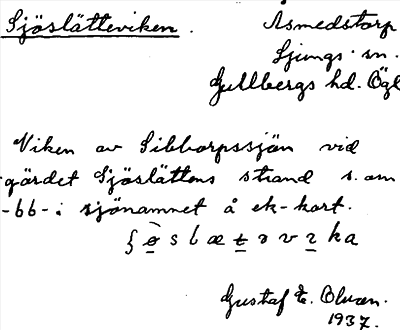 Sjöslätteviken.
Åsmedstorp
Ljungs sn.
Gullbergs hd. Ögl
Viken av Sibborpssjön vid
gärdet Sjöslättens strand s. om
-bb- i sjönamnet å ek-kart.
Gustaf E. Olsson.
1937.